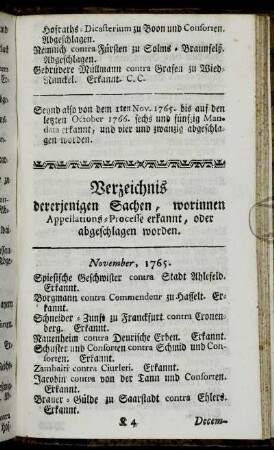 Hofraths-Dicasterium zu Bonn und Consorten.
Abgeschlagen.
Nemnich contra Fürsten zu Solms-Braunfelß.
Abgeschlagen.
Gebrüdere Mullmann contra Grafen zu Wied-
Runckel. Erkannt. C. C.
Seynd also von dem 1ten Nov. 1765. bis auf den
letzten October 1766. sechs und fünfzig Man-
data erkannt, und vier und zwanzig abgeschla-
gen worden.
Verzeichnis
dererjenigen Sachen, worinnen
Appellations-Processe erkannt, oder
abgeschlagen worden.
November, 1765.
Spiesische Geschwister contra Stadt Ahlefeld.
Erkannt.
Borgmann contra Commendeur zu Hasselt. Er-
kannt.
Schneider-Zunft zu Franckfurt contra Cronen-
berg. Erkannt.
Nauenheim contra Deurische Erben. Erkannt.
Schuster und Consorten contra Schmid und Con-
sorten. Erkannt.
Zambaiti contra Ciurleti. Erkannt.
Jacobin contra von der Tann und Consorten.
Erkannt.
Brauer-Gülde zu Saarstadt contra Ehlers.
Erkannt.
R 4 Decem-